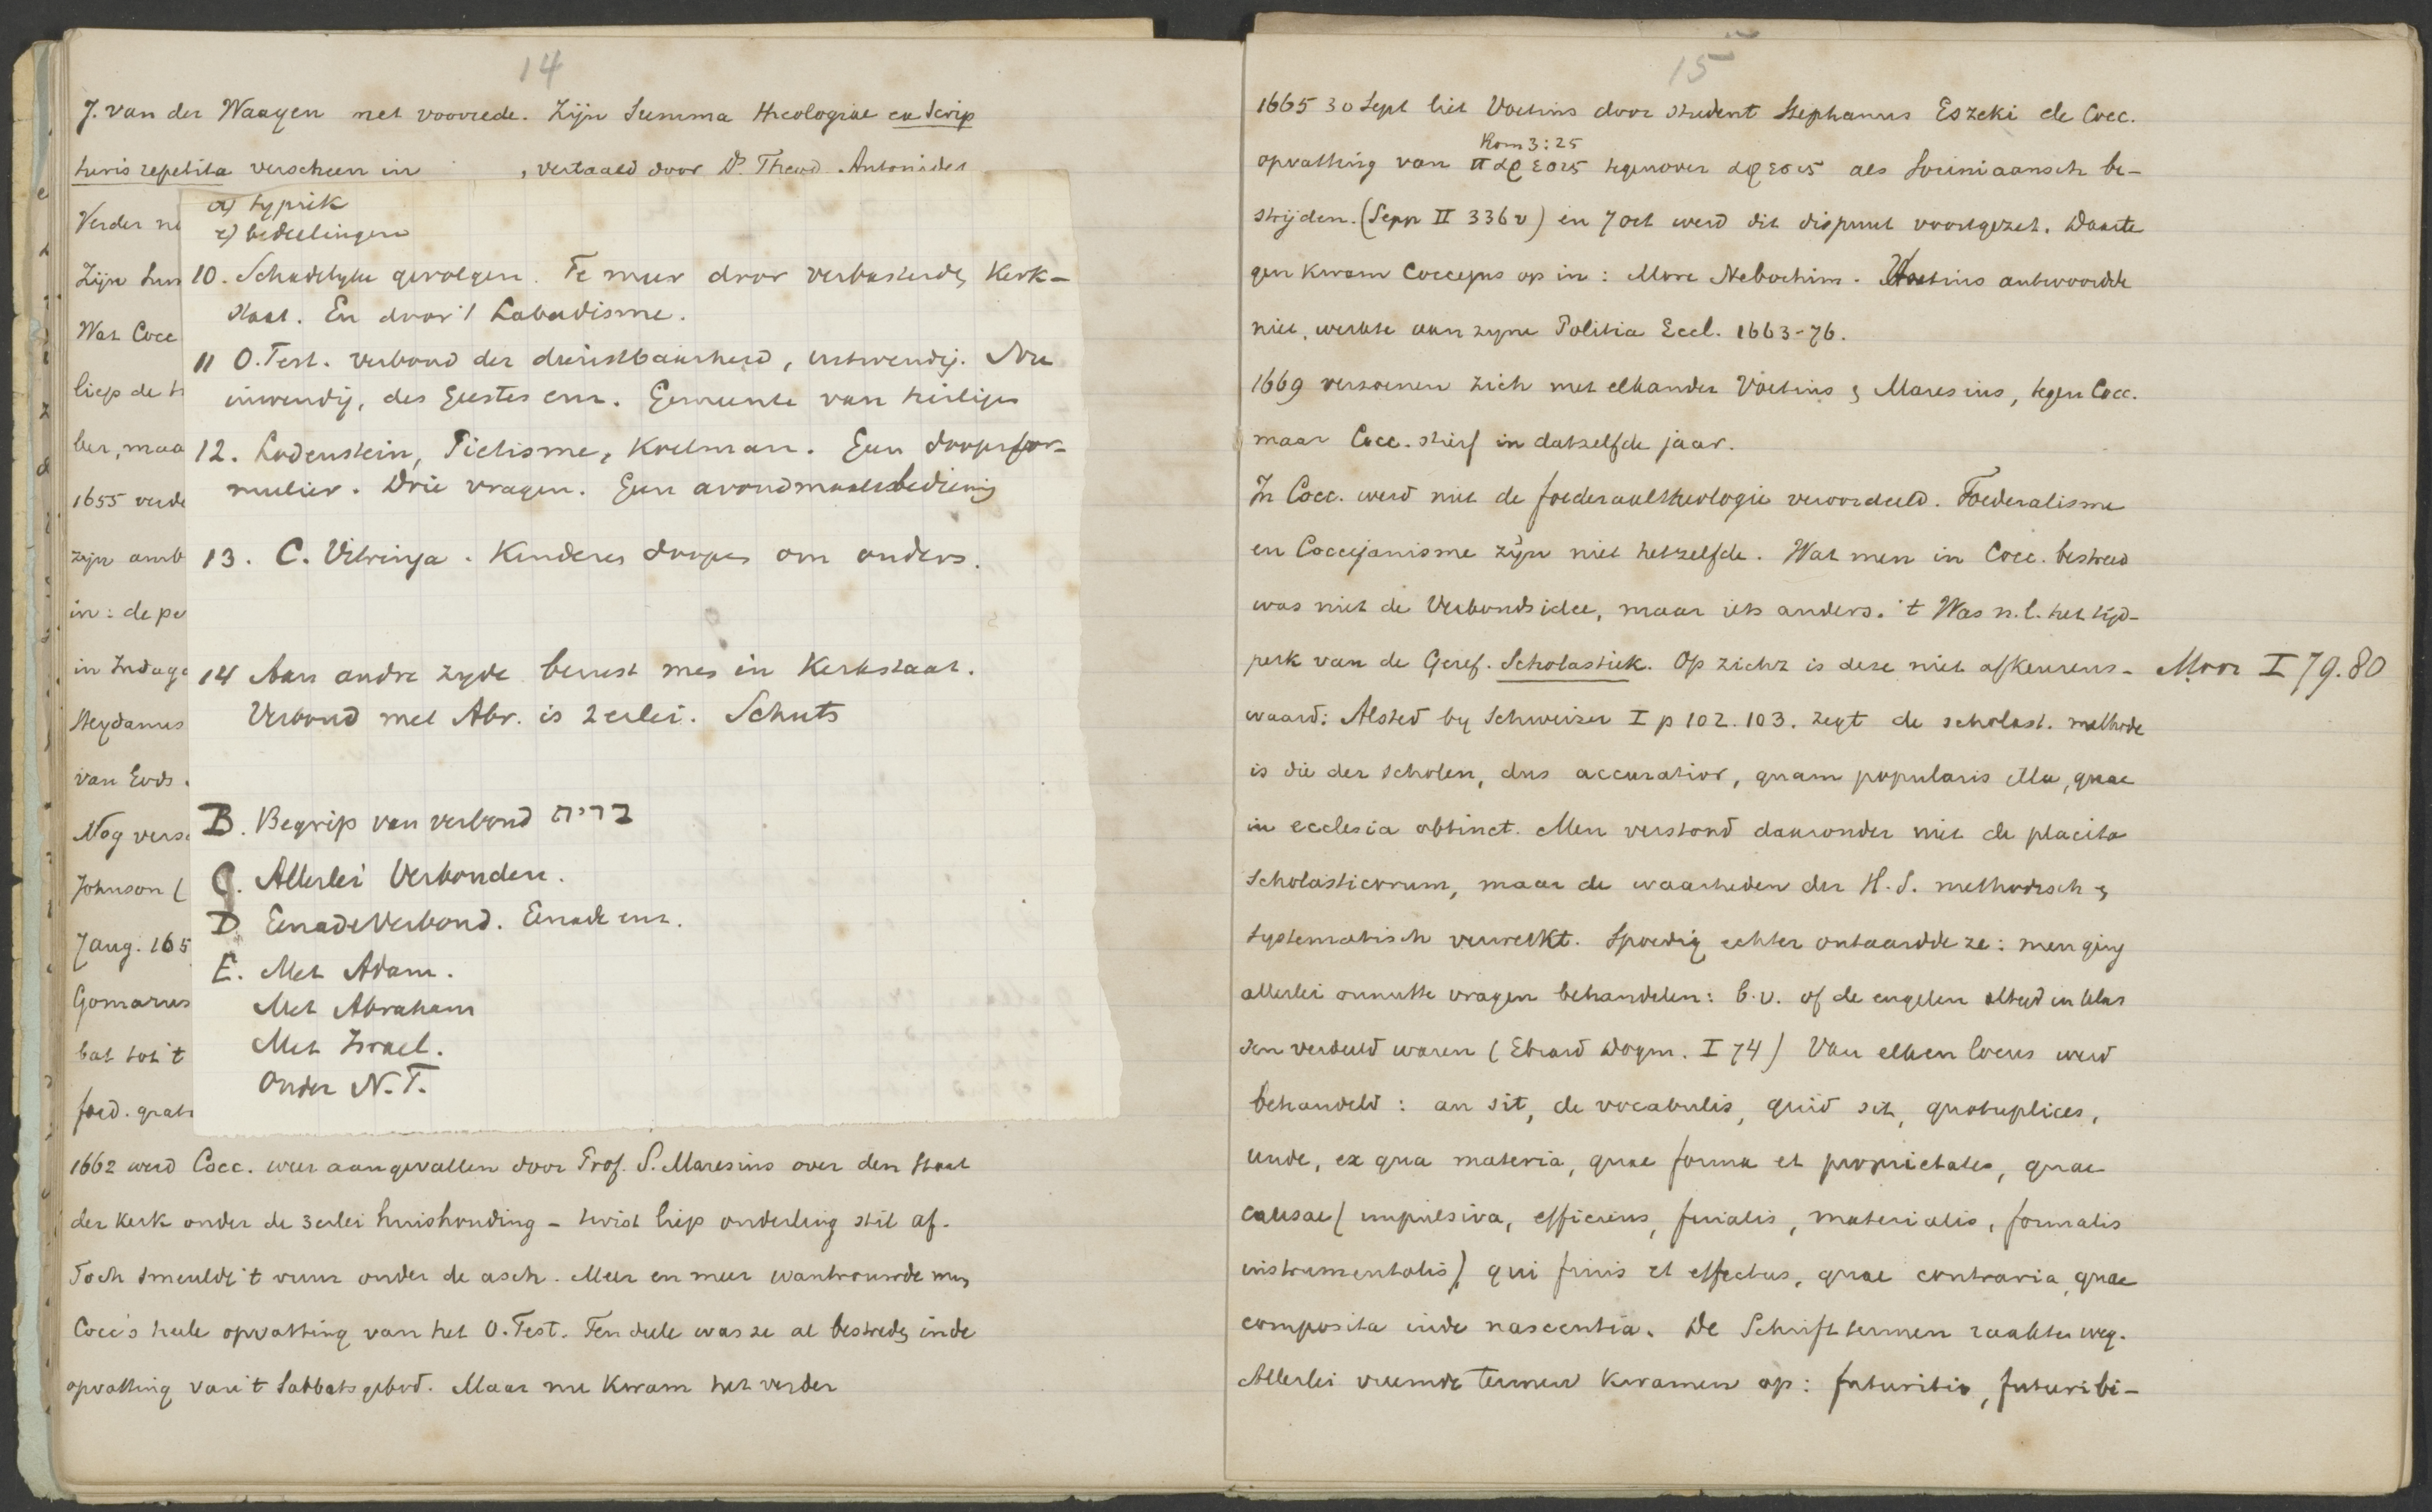 14
J. van der Waagen met voorrede. Zijn Summa theologiae ex Scrip
turis repetita verscheen in , vertaald door Ds. Theod. Antonides
Verder
Zijn
Wat Cocc
liep de
ber, maa
1655 verde
zijn amb
in: de
in Indag
Heydanus
van Gods
Nog versc
Johnson (
7 aug. 165
Gomarus
bat tot 't
foed. grat
a) typiek
bedeelingen
10. Schadelyke gevolgen. Te meer door verbasterde Kerk-
staat. En door 't Labadisme.
11 O. Test. verbond der dienstbaarheid, uitwendig. Nu
inwendig, des Geestes enz. Gemeente van heiligen
12. Lodenstein, Pietisme, Koelman. Geen doopsfor-
mulier. Drie vragen. Geen avondmaalsbediening
13. C. Vitringa. Kinderen doopen om ouders.
14 Aan andre zyde berust men in Kerkstaat.
Verbond met Abr. is 2erlei. Schuts
B. Begrip van verbond ברית
C. Allerlei Verbonden.
D Genadeverbond. Genade enz.
E. Met Adam.
Met Abraham
Met Israel.
Onder N.T.
1662 werd Cocc. weer aangevallen door Prof. S. Maresius over den staat
der kerk onder de 3erlei huishouding – twist liep onderling stil af.
Toch smeulde 't vuur onder de asch. Meer en meer wantrouwde men
Cocc's heele opvatting van het O. Test. Ten deele was ze al bestreden in de
opvatting van 't Sabbatsgebod. Maar nu kwam het verder
15
1665 30 Sept liet Voetius door student Stephanus Eszeki de Cocc.
Rom 3:25
opvatting van παρεσις tegenover αφεσις als Sociniaansch be-
strijden. (Sepp II 336 v) en 7 oct werd dit dispuut voortgezet. Daarte
gen kwam Coccejus op in: More Nebochim. Voetius antwoordde
niet, werkte aan zyne Politia Eccl. 1663-76.
1669 verzoenen zich met elkander Voetius & Maresius, tegen Cocc.
maar Cocc. stierf in datzelfde jaar.
In Cocc. werd niet de foederaaltheologie veroordeeld. Foederalisme
en Coccejanisme zijn niet hetzelfde. Wat men in Cocc. bestreed
was niet de Verbondsidee, maar iets anders. 't Was n.l. het tijd-
perk van de Geref. Scholastiek. Op zichz is deze niet afkeurens-
Moor I 79.80
waard: Alsted by Schweizer I p 102. 103. zegt de scholast. methode
is die der scholen, dus accuratior, quam popularis illa, quae
in ecclesia obtinet. Men verstond daaronder niet de placita
Scholasticorum, maar de waarheden der H. S. methodisch &
systematisch verwerkt. Spoedig echter ontaardde ze: men ging
allerlei onnutte vragen behandelen: b.v. of de engelen altyd in klas
sen verdeeld waren (Ebrard Dogm. I 74) Van elken locus werd
behandeld: an sit, de vocabulis, quid sit, quotuplices,
unde, ex qua materia, quae forma et proprietates, quae
causae (impulsiva, efficiens, finalis, materialis, formalis
instrumentalis), qui finis et effectus, quae contraria, quae
composita inde nascentia. De Schrifttermen raakten weg.
Allerlei vreemde termen kwamen op: futuritio, futuribi-